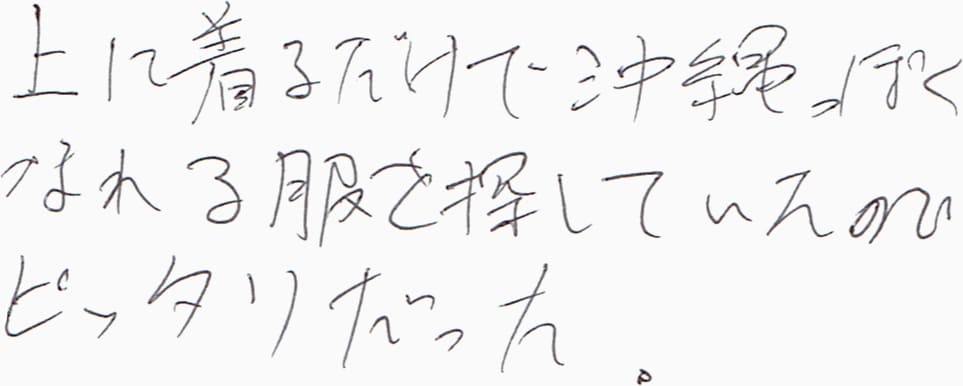 上に着るだけで沖縄っぽく
なれる服を探していたので
ピッタリだった。